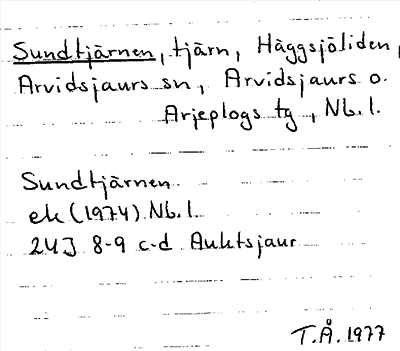 Sundtjärnen, tjärn, Häggsjöliden,
Arvidsjaurs sn, Arvidsjaurs o.
Arjeplogs tg, Nb. l.
Sundtjärnen
ek (1974) Nb. l.
24J 8-9 c-d Auktsjaur
T.Å. 1977